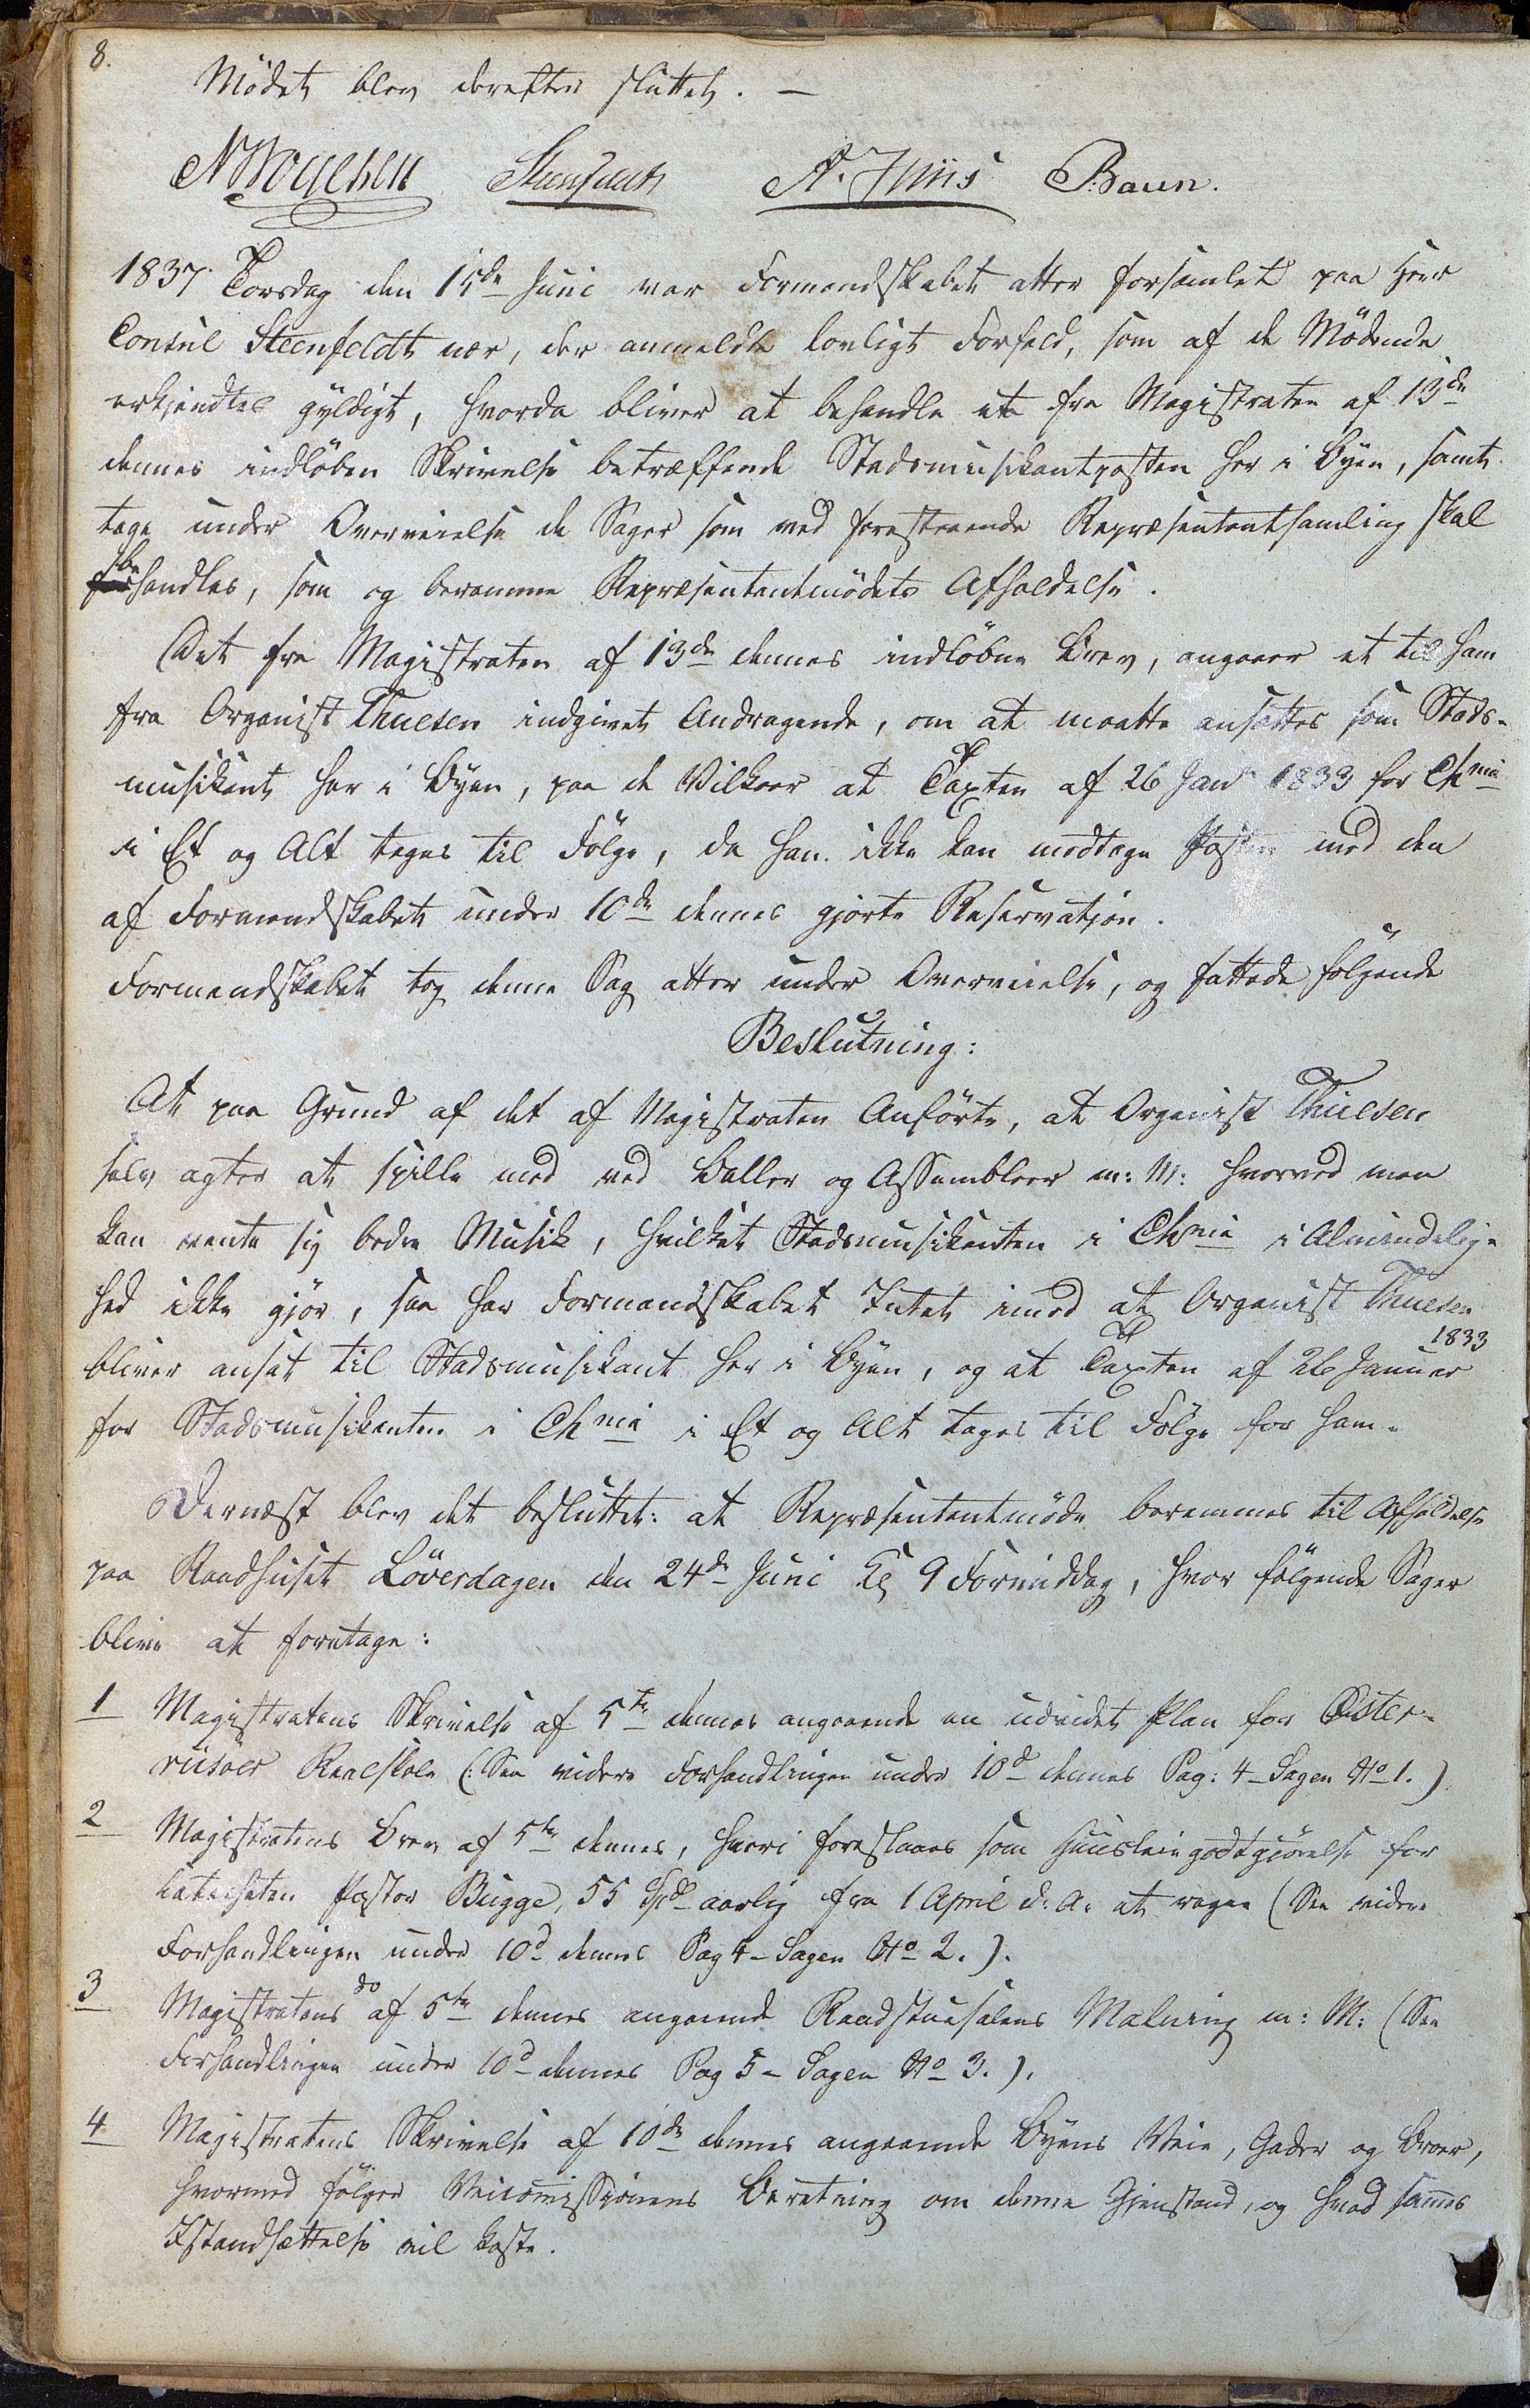 8.
Mödet blev derefter sluttet. –
A. Juiis Baun.
1837. Torsdag den 15de Juni var Formandskabet atter forsamlet paa Herr
Consul Steenfeldt nær, der anmeldte lovligt Forfald, som af de Mödende
erkjendtes gyldigt, hvorda bliver at behandle et fra Magistraten af 13de
dennes indlöben Skrivelse betræffende Stadsmusikantposten her i Byen, samt
tage under Overveielse de Sager som ved forestaaende Repræsentantsamling skal
behandles, som og beramme Repræsentantmödets Afholdelse.
Det fra Magistraten af 13de dennes indlöbne Brev, angaaer et til ham
fra Organist Thuesen indgivet Andragende, om at maatte ansættes som Stads-
musikant her i Byen, paa de Vilkaar at Taxten af 26 Janr 1833 for Chnia
i Et og Alt tages til Fölge, da han ikke kan modtage Posten med den
af Formandskabet under 10de dennes gjorte Reservation.
Formandskabet tog denne Sag atter under Overveielse, og fattede fölgende
Beslutning:
At paa Grund af det af Magistraten Anförte, at Organist Thuesen
selv agter at spille med ved Baller og Assembleer m: M: hvorved man
kan vente sig bedre Musik, hvilket Stadsmusikanten i Chnia i Almindelig-
hed ikke gjör, saa har Formandskabet Intet imod at Organist Thuesen
bliver ansat til Stadsmusikant her i Byen, og at Taxten af 26 Januar 1833
for Stadsmusikanten i Chnia i Et og Alt tages til Fölge for ham.
Dernæst blev det besluttet: at Repræsentantmöde berammes til Afholdelse
paa Raadhuset Löverdagen den 24de Juni Kl 9 Formiddag, hvor fölgende Sager
blive at foretage:
1 Magistratens Skrivelse af 5te dennes angaaende en udvidet Plan for Öster-
riisöer Realskole (: See videre Forhandlingen under 10d dennes Pag: 4 – Sagen No 1.)
2 Magistratens Brev af 5te dennes, hvori foreslaaes som Huusleiegodtgjörelse for
Catecheten Pastor Bugge, 55 Spd aarlig fra 1 April d: A: at regne (See videre
Forhandlingen under 10d dennes Pag 4 – Sagen No 2.).
3 Magistratens do af 5te dennes angaaende Raadstuesalens Malning m: M: (See
Forhandlingen under 10d dennes Pag 5 – Sagen No 3.).
4 Magistratens Skrivelse af 10de dennes angaaende Byens Veie, Gader og Broer,
hvormed fölger Veicomissionens Beretning om denne Gjenstand, og hvad sammes
Istandsættelse vil koste.